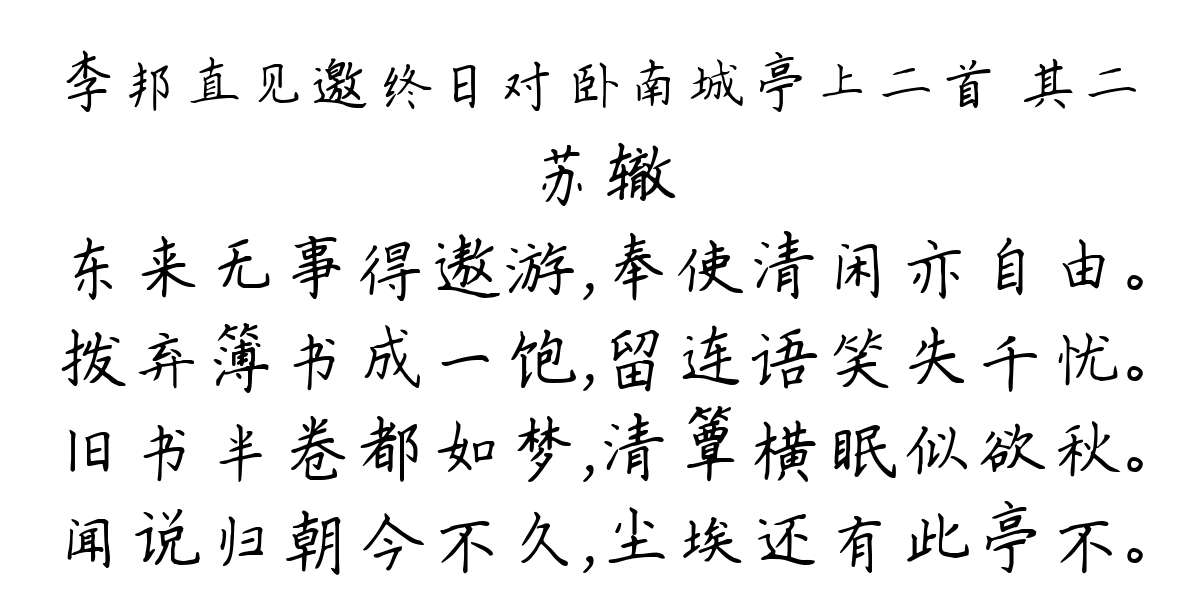 李邦直见邀终日对卧南城亭上二首 其二
苏辙
东来无事得遨游,奉使清闲亦自由。
拨弃簿书成一饱,留连语笑失千忧。
旧书半卷都如梦,清簟横眠似欲秋。
闻说归朝今不久,尘埃还有此亭不。